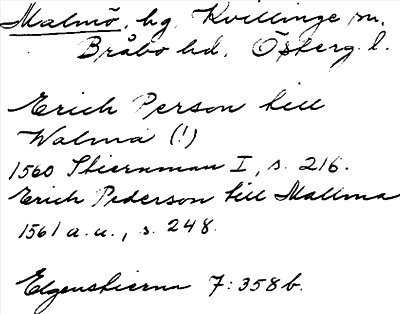 Malmö, hg, Kvillinge sn,
Bråbo hd, Österg. l.
Erich Person till
Walma (!)
1560 Stiernman I, s. 216.
Erich Pederson till Mallma
1561 a. a., s. 248.
Elgenstierna 7:358b.